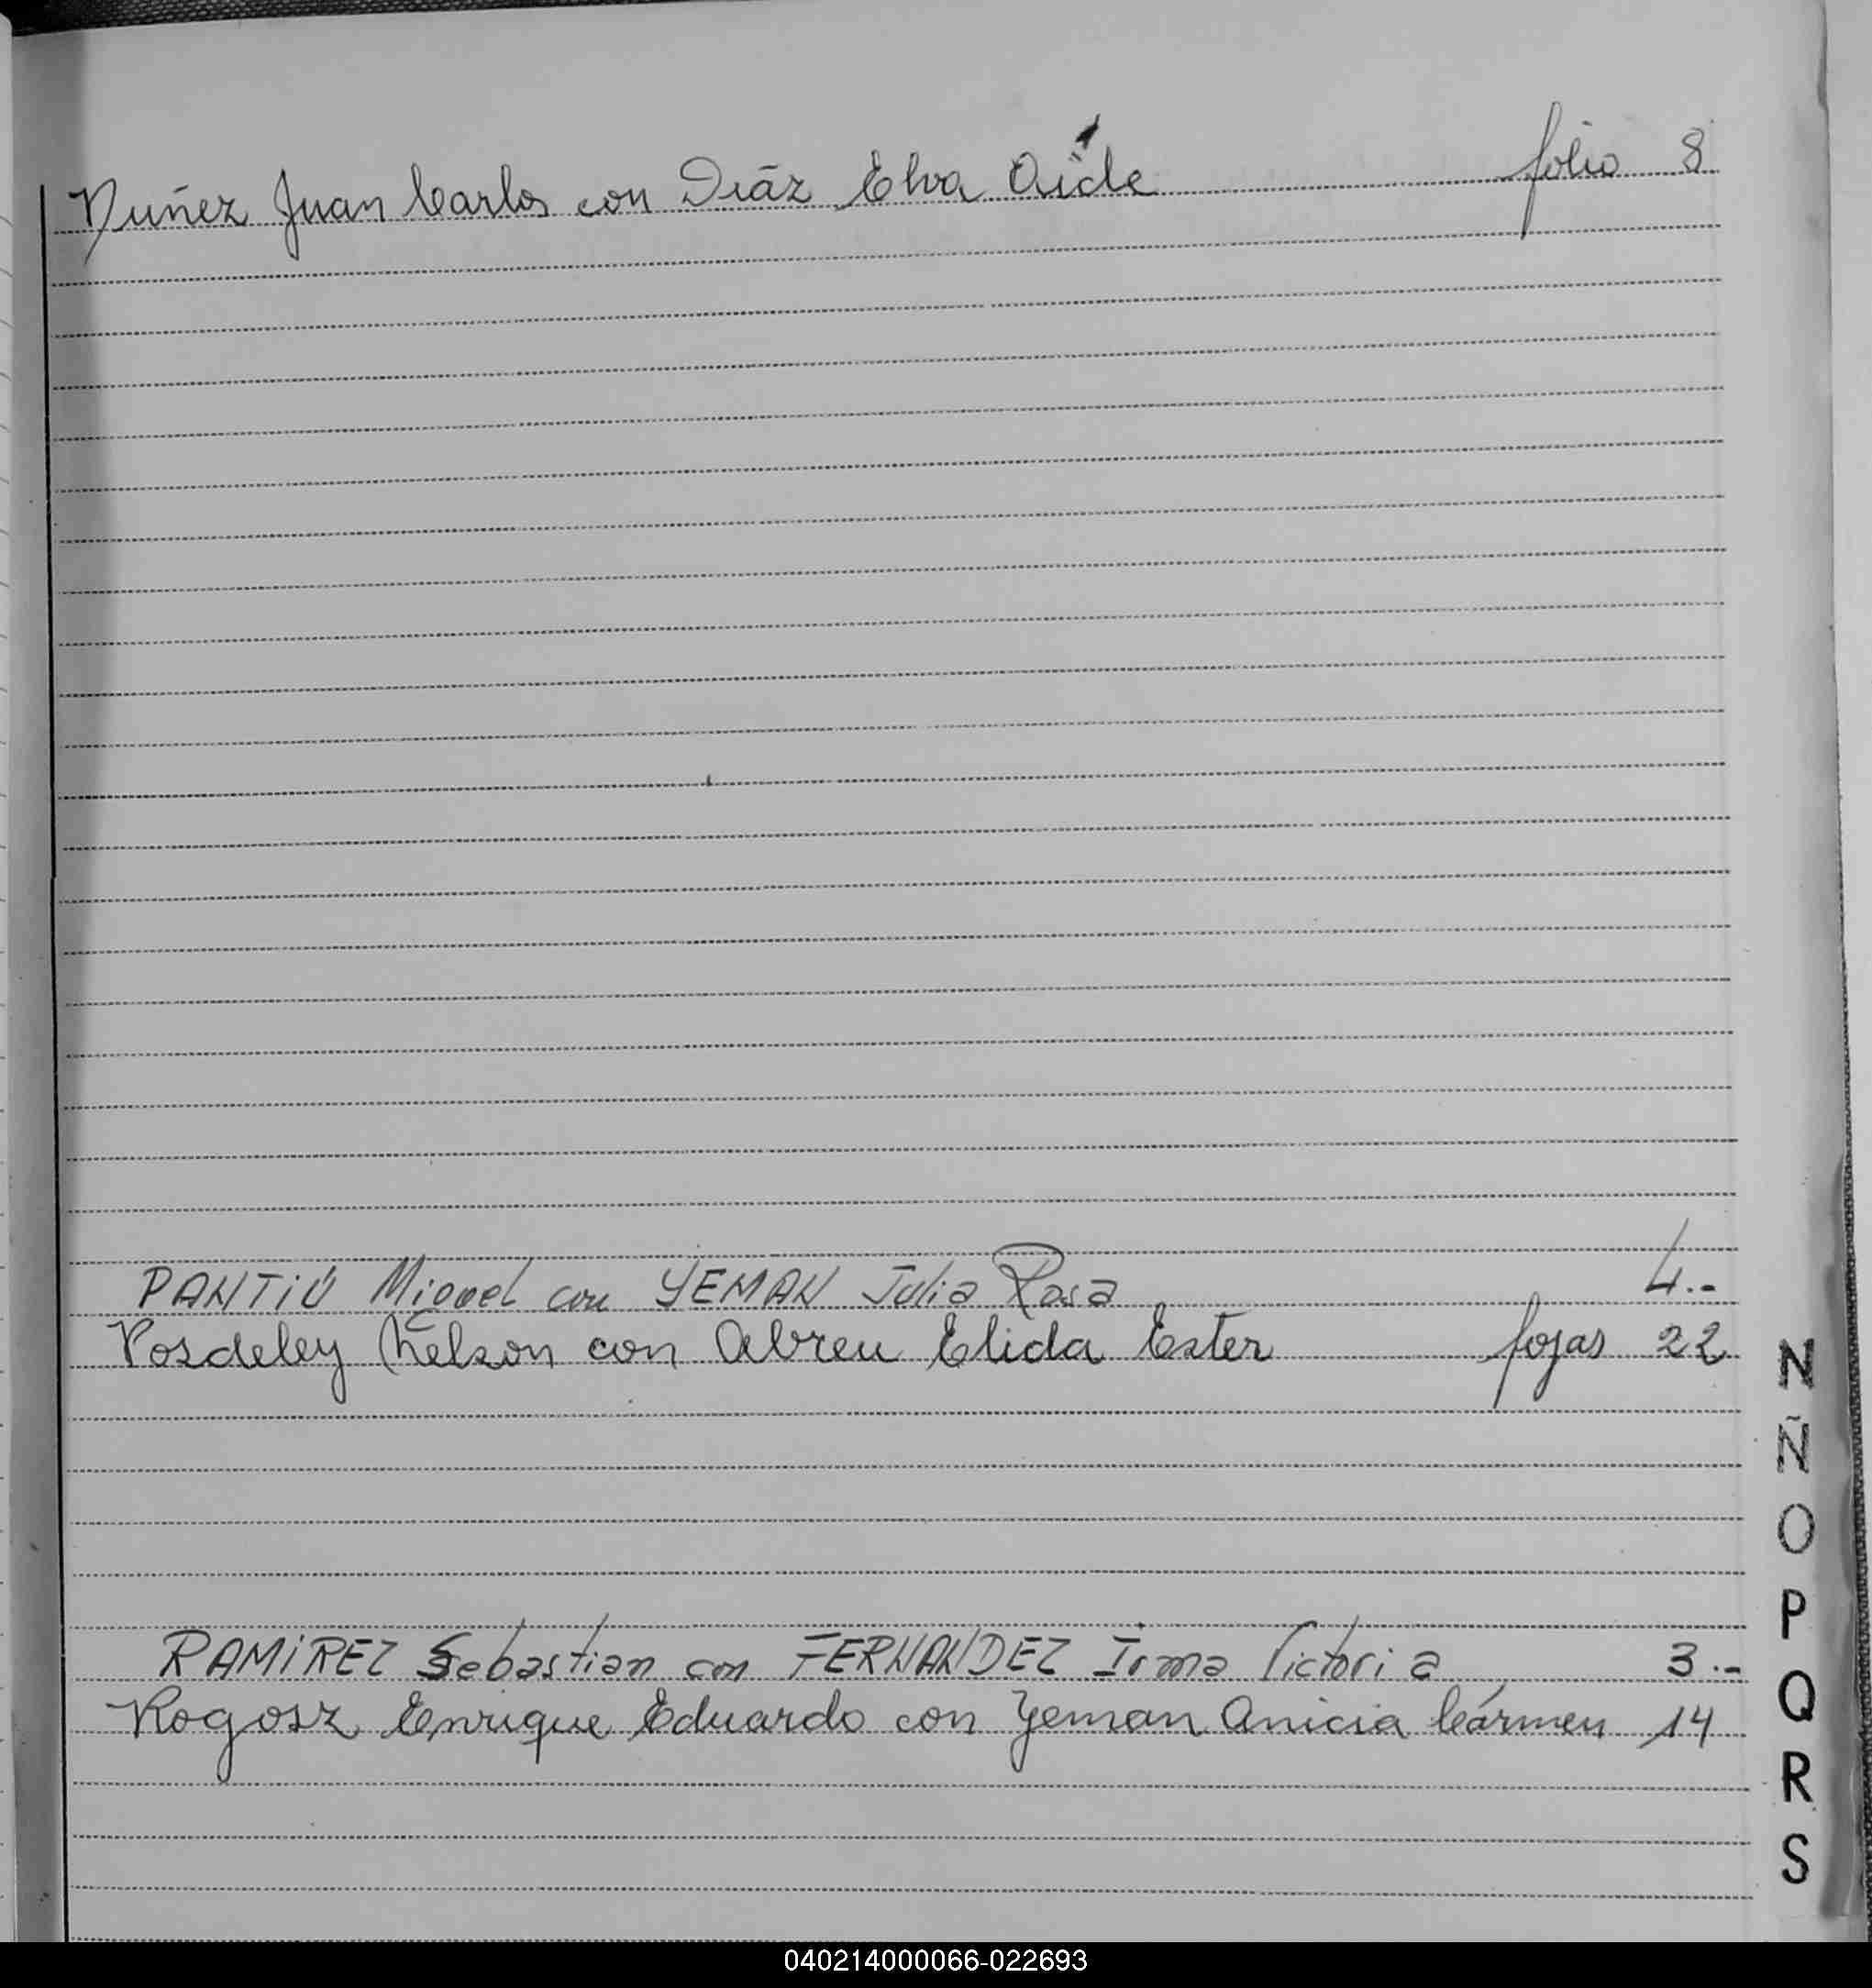 Nuñez Juan Carlos con Diáz Elva Aide folio 8
PANTIÚ Miguel con YEMAN Julia Rosa 4.-
Posdeley Nelson con Abreu Elida Ester fojas 22
RAMIREZ Sebastian con FERNANDEZ Irma Victoria 3.-
Rogosz Enrique Eduardo con Yeman Anicia Cármen 14
N
Ñ
O
P
Q
R
S
040214000066-022693